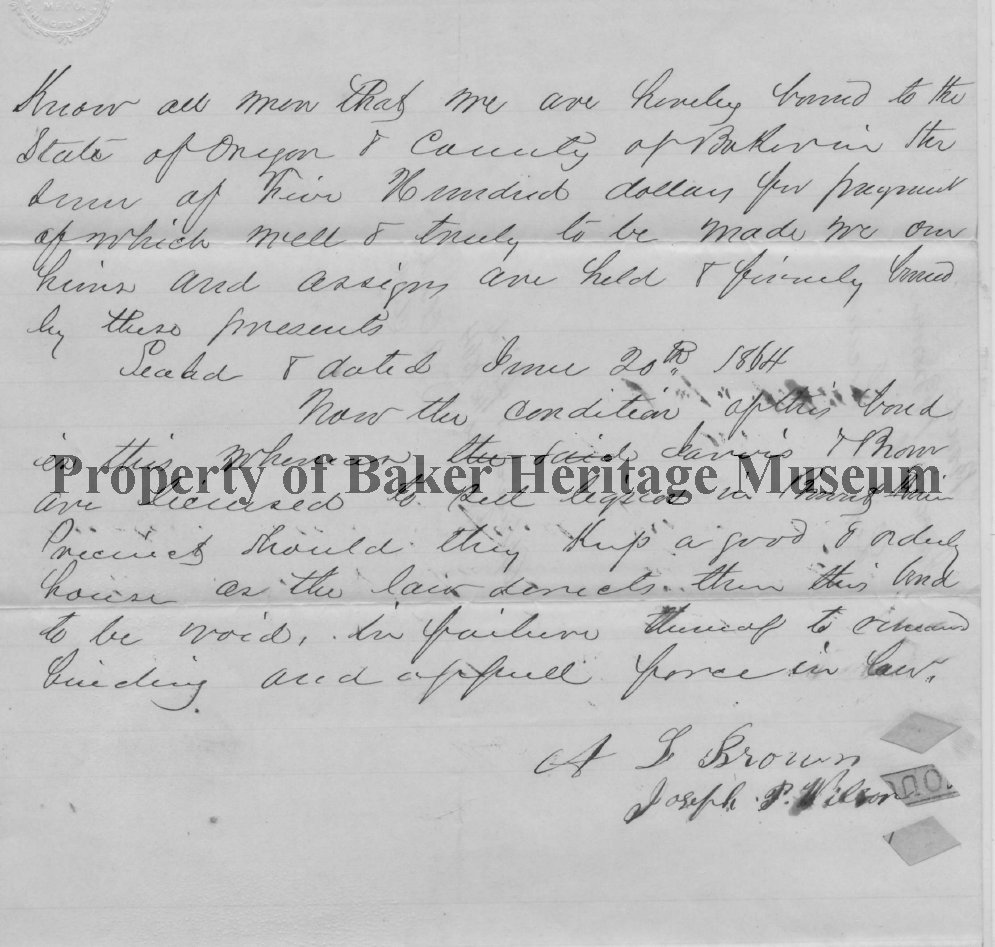 Know all men that we are hereby bound to the
State of Oregon & County of Baker in the
sum of Five Hundred dollars for payment
of which well & truly to be made we our
heirs and assigns are held & firmly bound
by these presents
Sealed & dated June 20th 1864
Now the condition of this bond
is this whereas the said Jarvis & Brown
Property of Baker Heritage Museum
are licensed to sell liquor in
Precinct should they keep a good & orderly
house as the law directs then this bond
to be void, in failure thereof to remain
binding and of full force in law.
A L Brown
Joseph P. Wilson